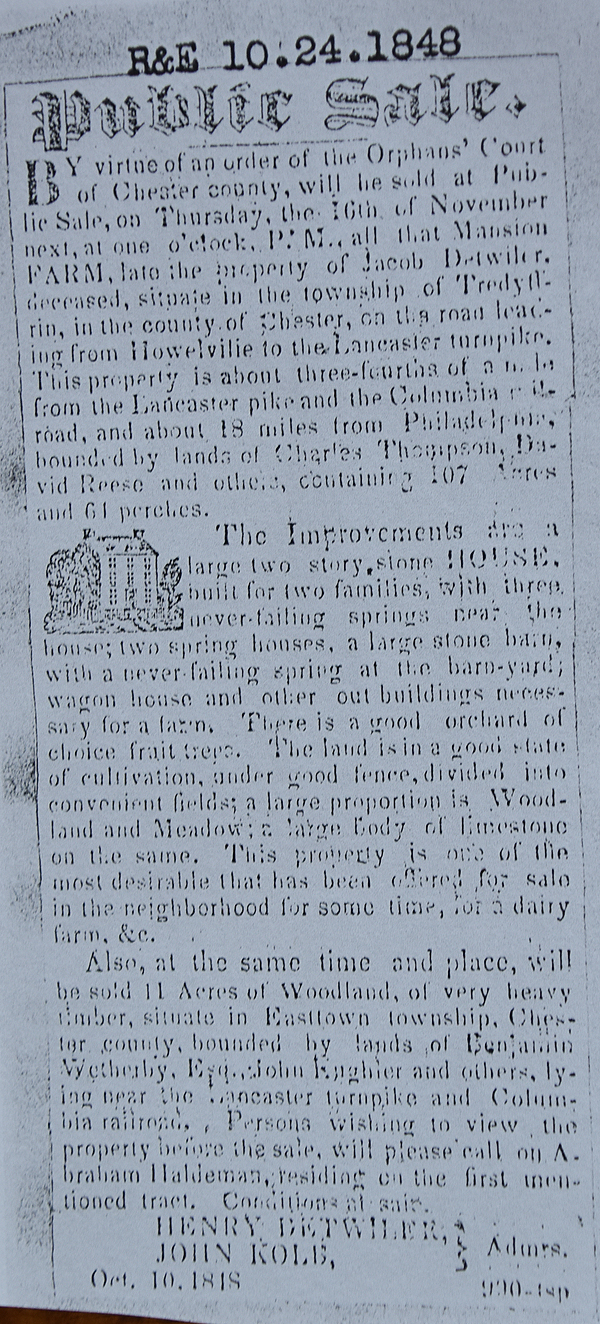 R&E 10.24.1848
Public Sale.
BY virtue of an order of the Orphans' Court
of Chester county, will be sold at Pub-
lic Sale, on Thursday, the 16th of November
next, at one o'clock, P. M., all that Mansion
FARM, late the property of Jacob Detwiler,
deceased, situate in the township of Tredyff-
rin, in the county of Chester, on the road lead-
ing from Howelville to the Lancaster turnpike.
This property is about three-fourths of a mile
from the Lancaster pike and the Columbia rail-
road, and about 18 miles from Philadelphia,
bounded by lands of Charles Thompson, Da-
vid Reese and others, containing 107 Acres
and 61 perches.
The Improvements are a
large two story, stone HOUSE,
built for two families, with three
never-failing springs near the
house; two spring houses, a large stone barn,
with a never-failing spring at the barn-yard;
wagon house and other out buildings neces-
sary for a farm. There is a good orchard of
choice fruit trees. The land is in a good state
of cultivation, under good fence, divided into
convenient fields; a large proportion is Wood-
land and Meadow; a large body of limestone
on the same. This property is one of the
most desirable that has been offered for sale
in the neighborhood for some time, for a dairy
farm, &c.
Also, at the same time and place, will
be sold 11 Acres of Woodland, of very heavy
timber, situate in Easttown township, Ches-
ter county, bounded by lands of Benjamin
Wetherby, Esq., John and others, ly-
ing near the Lancaster turnpike and Colum-
bia railroad. Persons wishing to view the
property before the sale, will please call on A-
braham Haldeman, residing on the first men-
tioned tract. Conditions at sale.
HENRY DETWILER,
JOHN KOLB,
Admrs.
Oct. 10, 1848